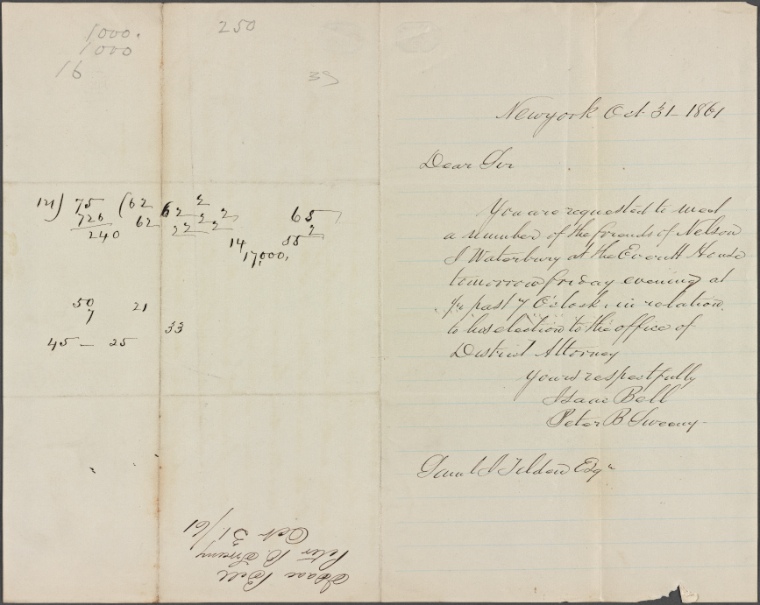 1000.
1000
16
250
39
121) 75 (62
726
240
62
62
2
2 2
22 2
65
55
2
14
17,000,
50
7
21
45 - 25
33
Isaac Bell
Peter B. Sweeny
Oct 31/61
Newyork Oct 31 - 1861
Dear Sir
You are requested to meet
a number of the friends of Nelson
J Waterbury at the Everett House
tomorrow friday evening at
½ past 7 O'clock, in relation
to his election to the office of
District Attorney
Yours respectfully
Isaac Bell
Peter B Sweeny -
Saml J Tilden Esqr